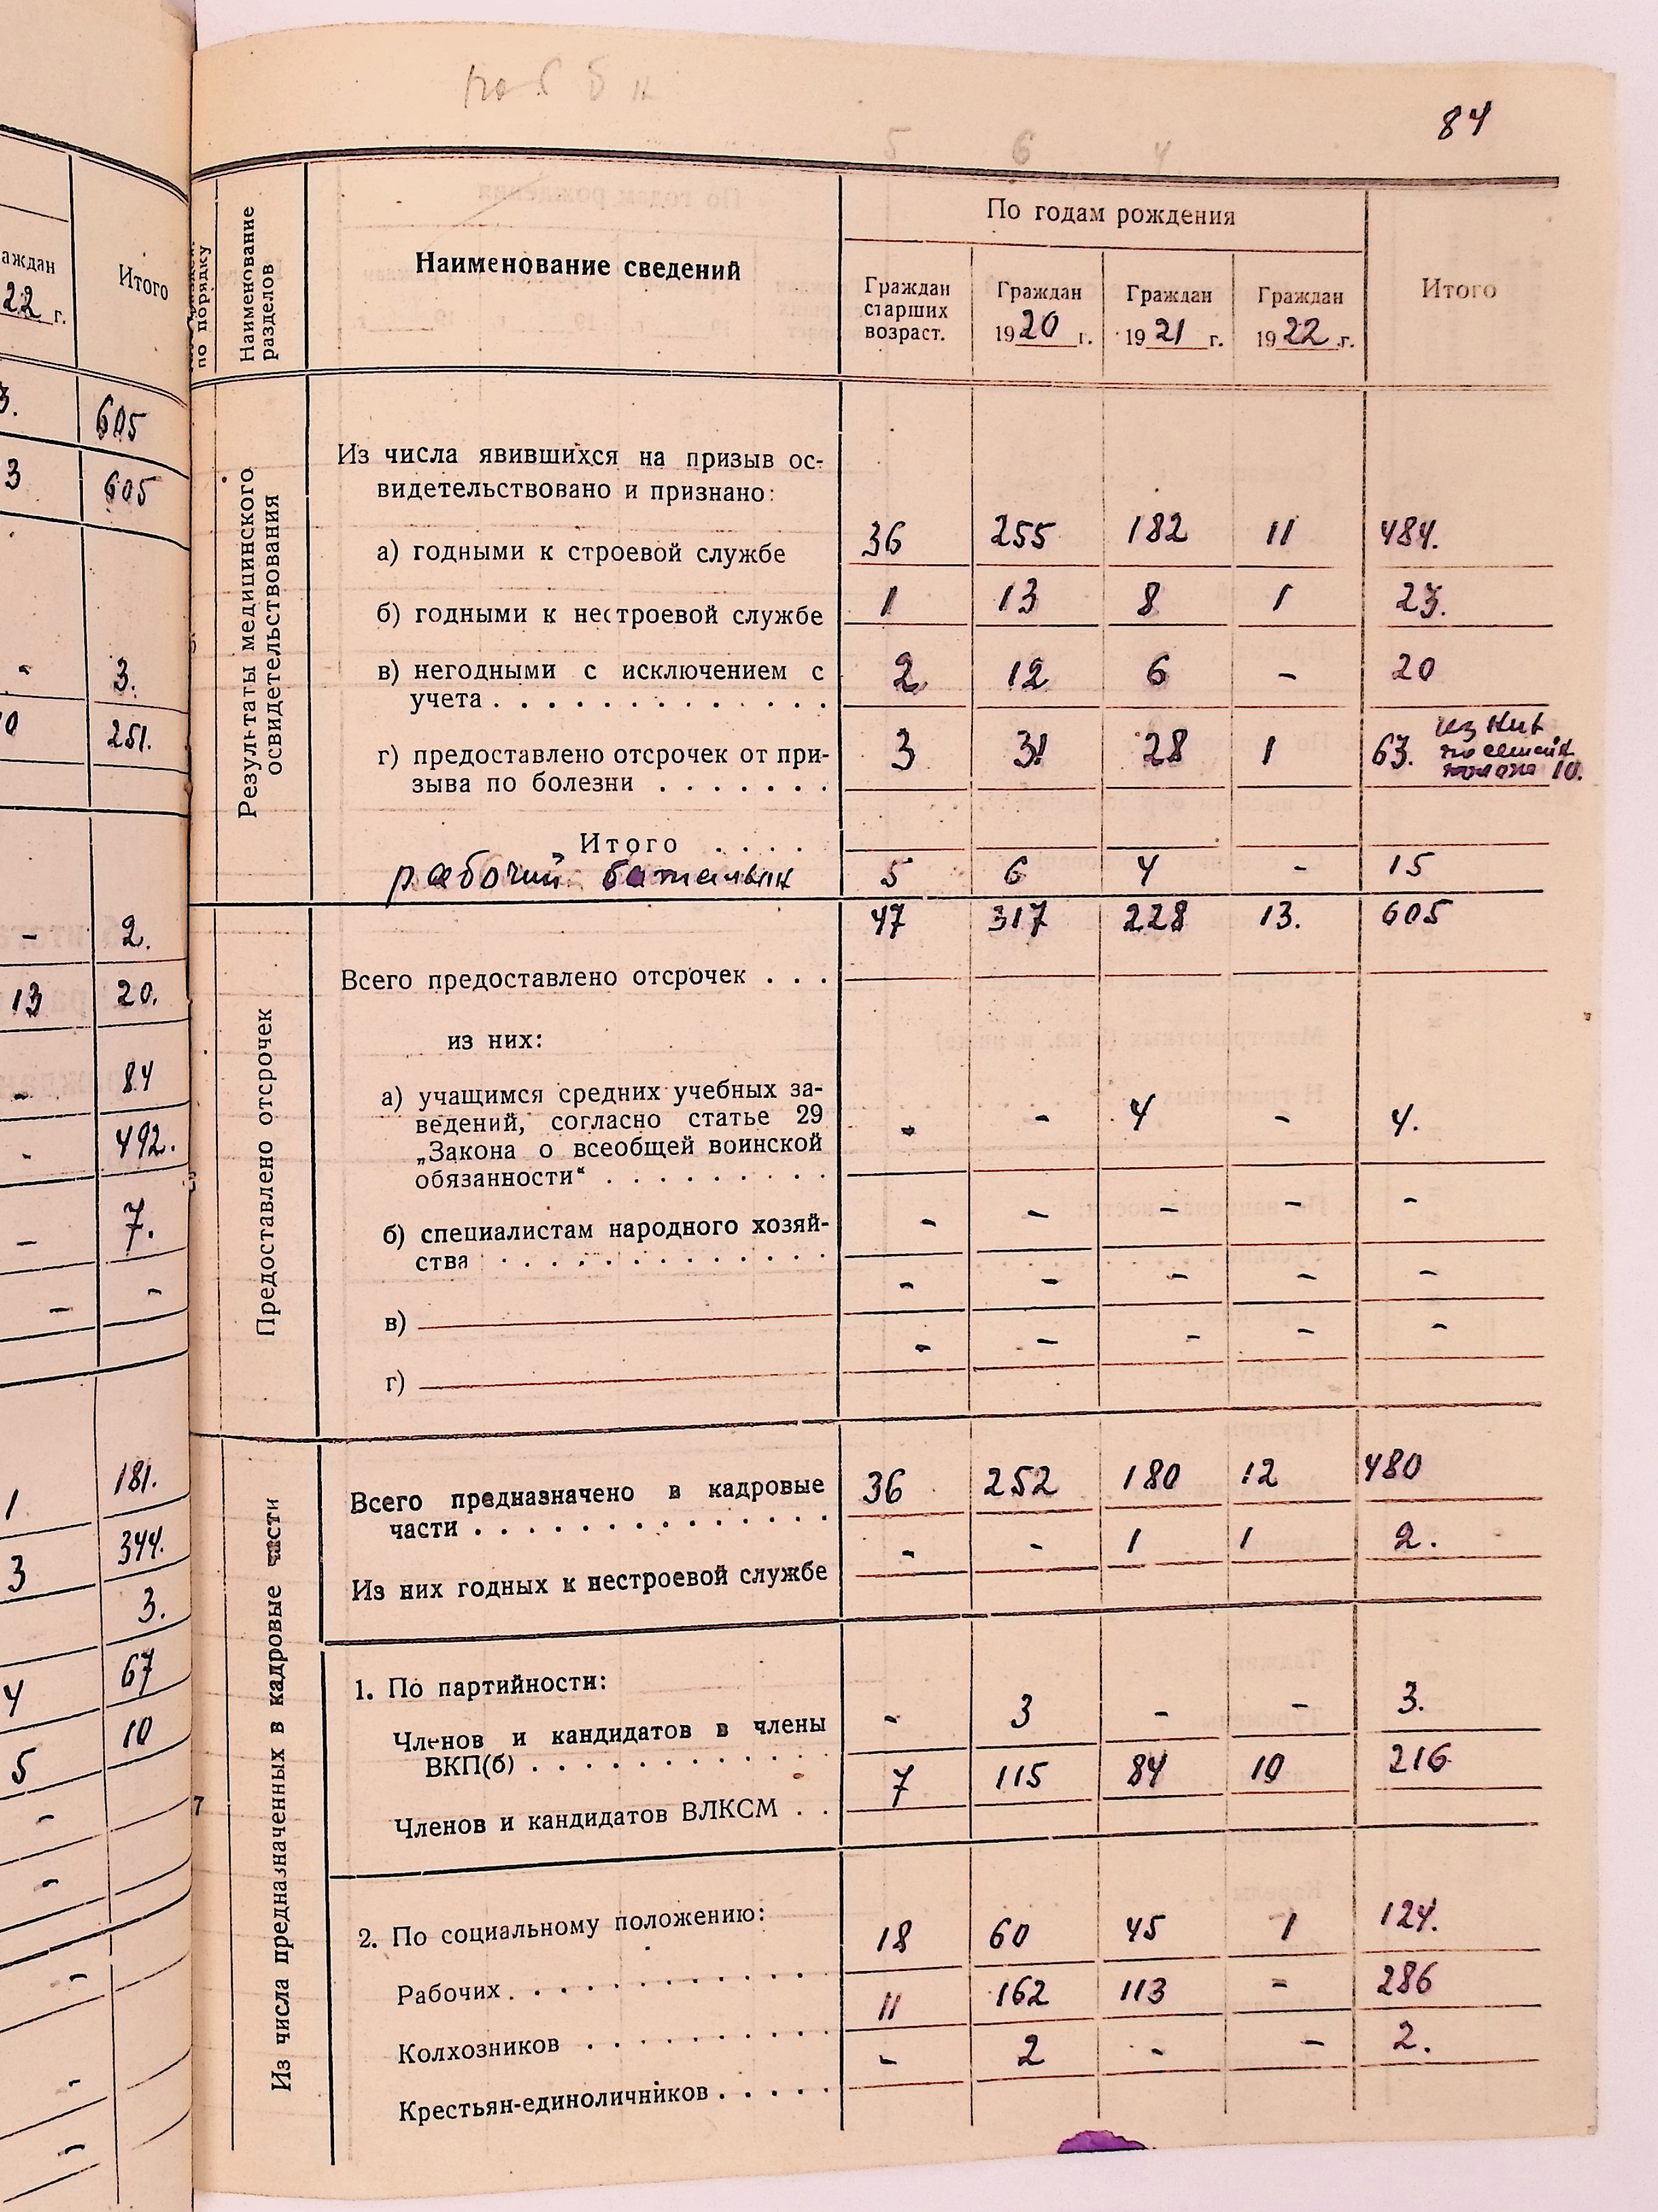 аждан
22 г.
Итого
3. 605
3 605
- 3.
0 251.
- 2.
13 20.
- 84
- 492.
- 7.
- -
1 181.
3 344.
3.
4 67
5 10
-
-
-
-
-
7
84
5 6 4
по порядку
Наименование разделов
Наименование сведений
По годам рождения
Граждан старших возраст.
Граждан 1920 г.
Граждан 1921 г.
Граждан 1922 г.
Итого
Результаты медицинского освидетельствования
Из числа явившихся на призыв ос-
видетельствовано и признано:
а) годными к строевой службе 36 255 182 11 484.
б) годными к нестроевой службе 1 13 8 1 23.
в) негодными с исключением с
учета . . . . . . . . . . . . . 2 12 6 - 20
г) предоставлено отсрочек от при-
зыва по болезни . . . . . . . 3 31 28 1 63. из них
10.
Итого . . . .
рабочий батальон 5 6 4 - 15
47 317 228 13. 605
Предоставлено отсрочек
Всего предоставлено отсрочек . . .
из них:
а) учащимся средних учебных за-
ведений, согласно статье 29
„Закона о всеобщей воинской
обязанности“ . . . . . . . . . - - 4 - 4.
б) специалистам народного хозяй-
ства . . . . . . . . . . . . . - - - - -
в) - - - - -
г) - - - - -
Из числа предназначенных в кадровые части
Всего предназначено в кадровые
части . . . . . . . . . . . . . . 36 252 180 12 480
Из них годных к нестроевой службе - - 1 1 2.
1. По партийности:
Членов и кандидатов в члены
ВКП(б) . . . . . . . . . . . - 3 - - 3.
Членов и кандидатов ВЛКСМ . . 7 115 84 10 216
2. По социальному положению:
Рабочих . . . . . . . . . . . . 18 60 45 1 124.
Колхозников . . . . . . . . . 11 162 113 - 286
Крестьян-единоличников . . . . . - 2 - - 2.